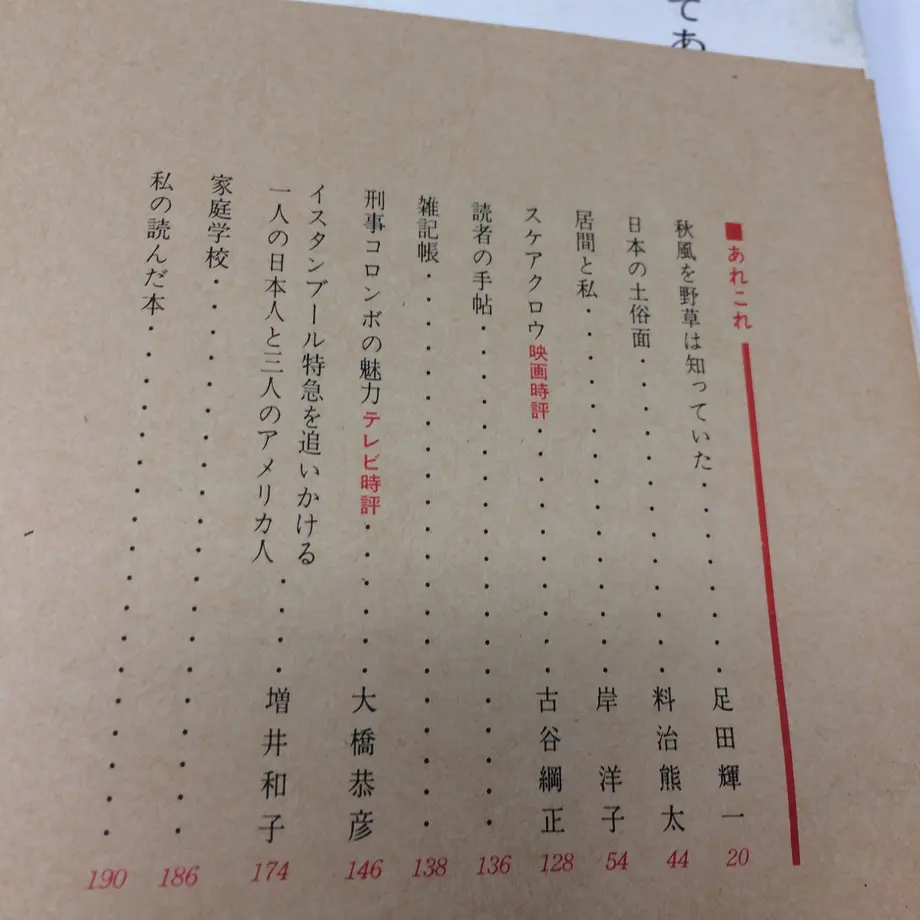 てあ
■あれこれ
秋風を野草は知っていた・・・・・・・足田輝一 20
日本の土俗面・・・・・・・・・・料治熊太 44
居間と私・・・・・・・・・・・岸 洋子 54
スケアクロウ映画時評・・・・・・・・古谷綱正 128
読者の手帖・・・・・・・・・・・・・・ 136
雑記帳・・・・・・・・・・・・・・・ 138
刑事コロンボの魅力テレビ時評・・・・・大橋恭彦 146
イスタンブール特急を追いかける
一人の日本人と三人のアメリカ人・・・・増井和子 174
家庭学校・・・・・・・・・・・・・・・ 186
私の読んだ本・・・・・・・・・・・・・ 190